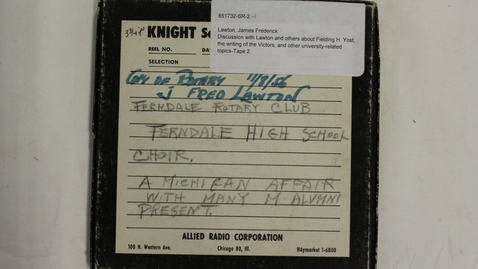 851732-SR-2 -1
Lawton, James Frederick
Discussion with Lawton and others about Fielding H. Yost,
the writing of the Victors, and other university-related
topics-Tape 2
3 3/4"
KNIGHT
REEL NO. DA
SELECTION
COPY OF ROTARY 11/8/56
J FRED LAWTON
FERNDALE ROTARY CLUB
FERNDALE HIGH SCHOOL
CHOIR.
A MICHIGAN AFFAIR
WITH MANY M. ALUMNI
PRESENT.
ALLIED RADIO CORPORATION
100 N. Western Ave. Chicago 80, Ill. HAymarket 1-6800